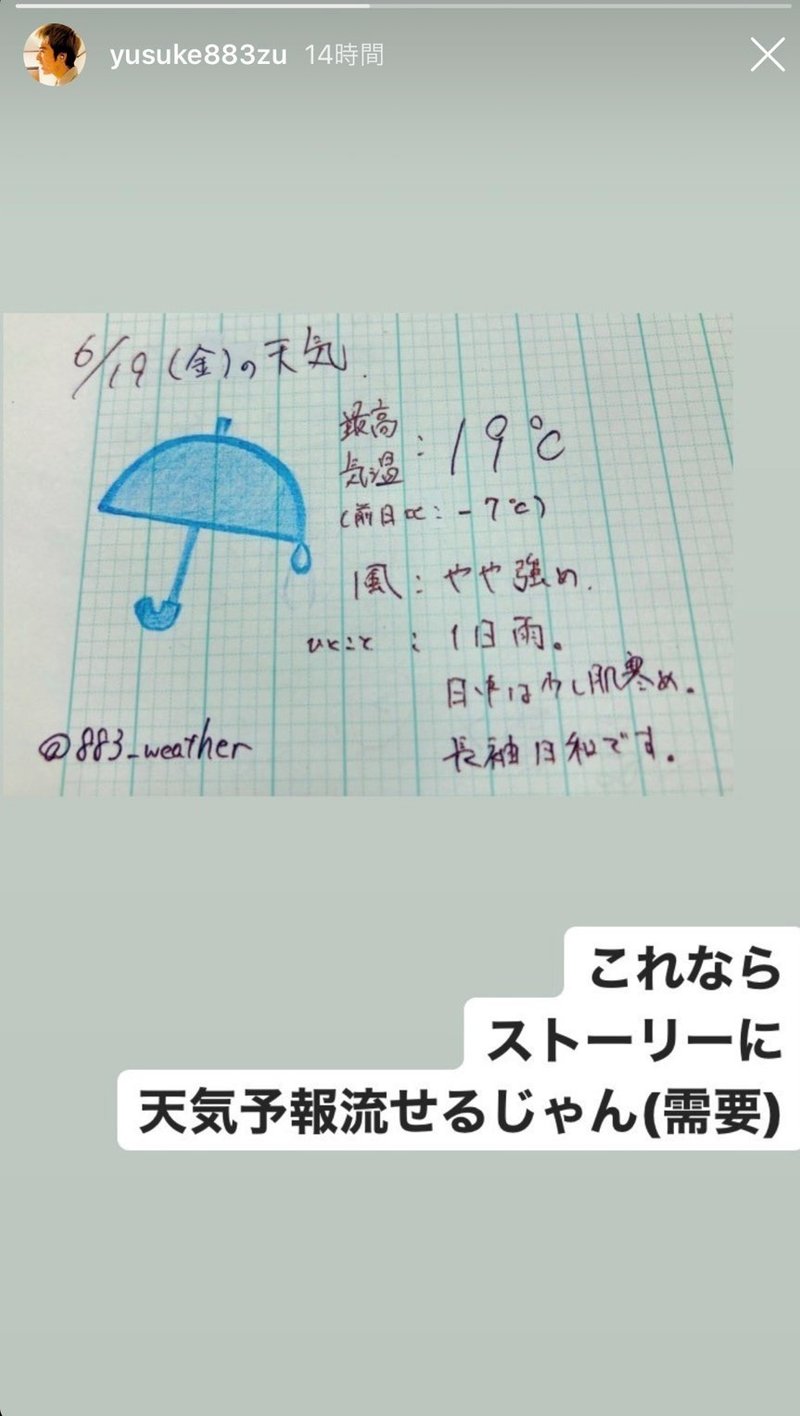 yusuke883zu 14時間
6/19(金)の天気.
最高気温:19℃
(前日比:-7℃)
風:やや強め.
ひとこと:1日雨。
日中は少し肌寒め。
長袖日和です。
@883_weather
これなら
ストーリーに
天気予報流せるじゃん(需要)